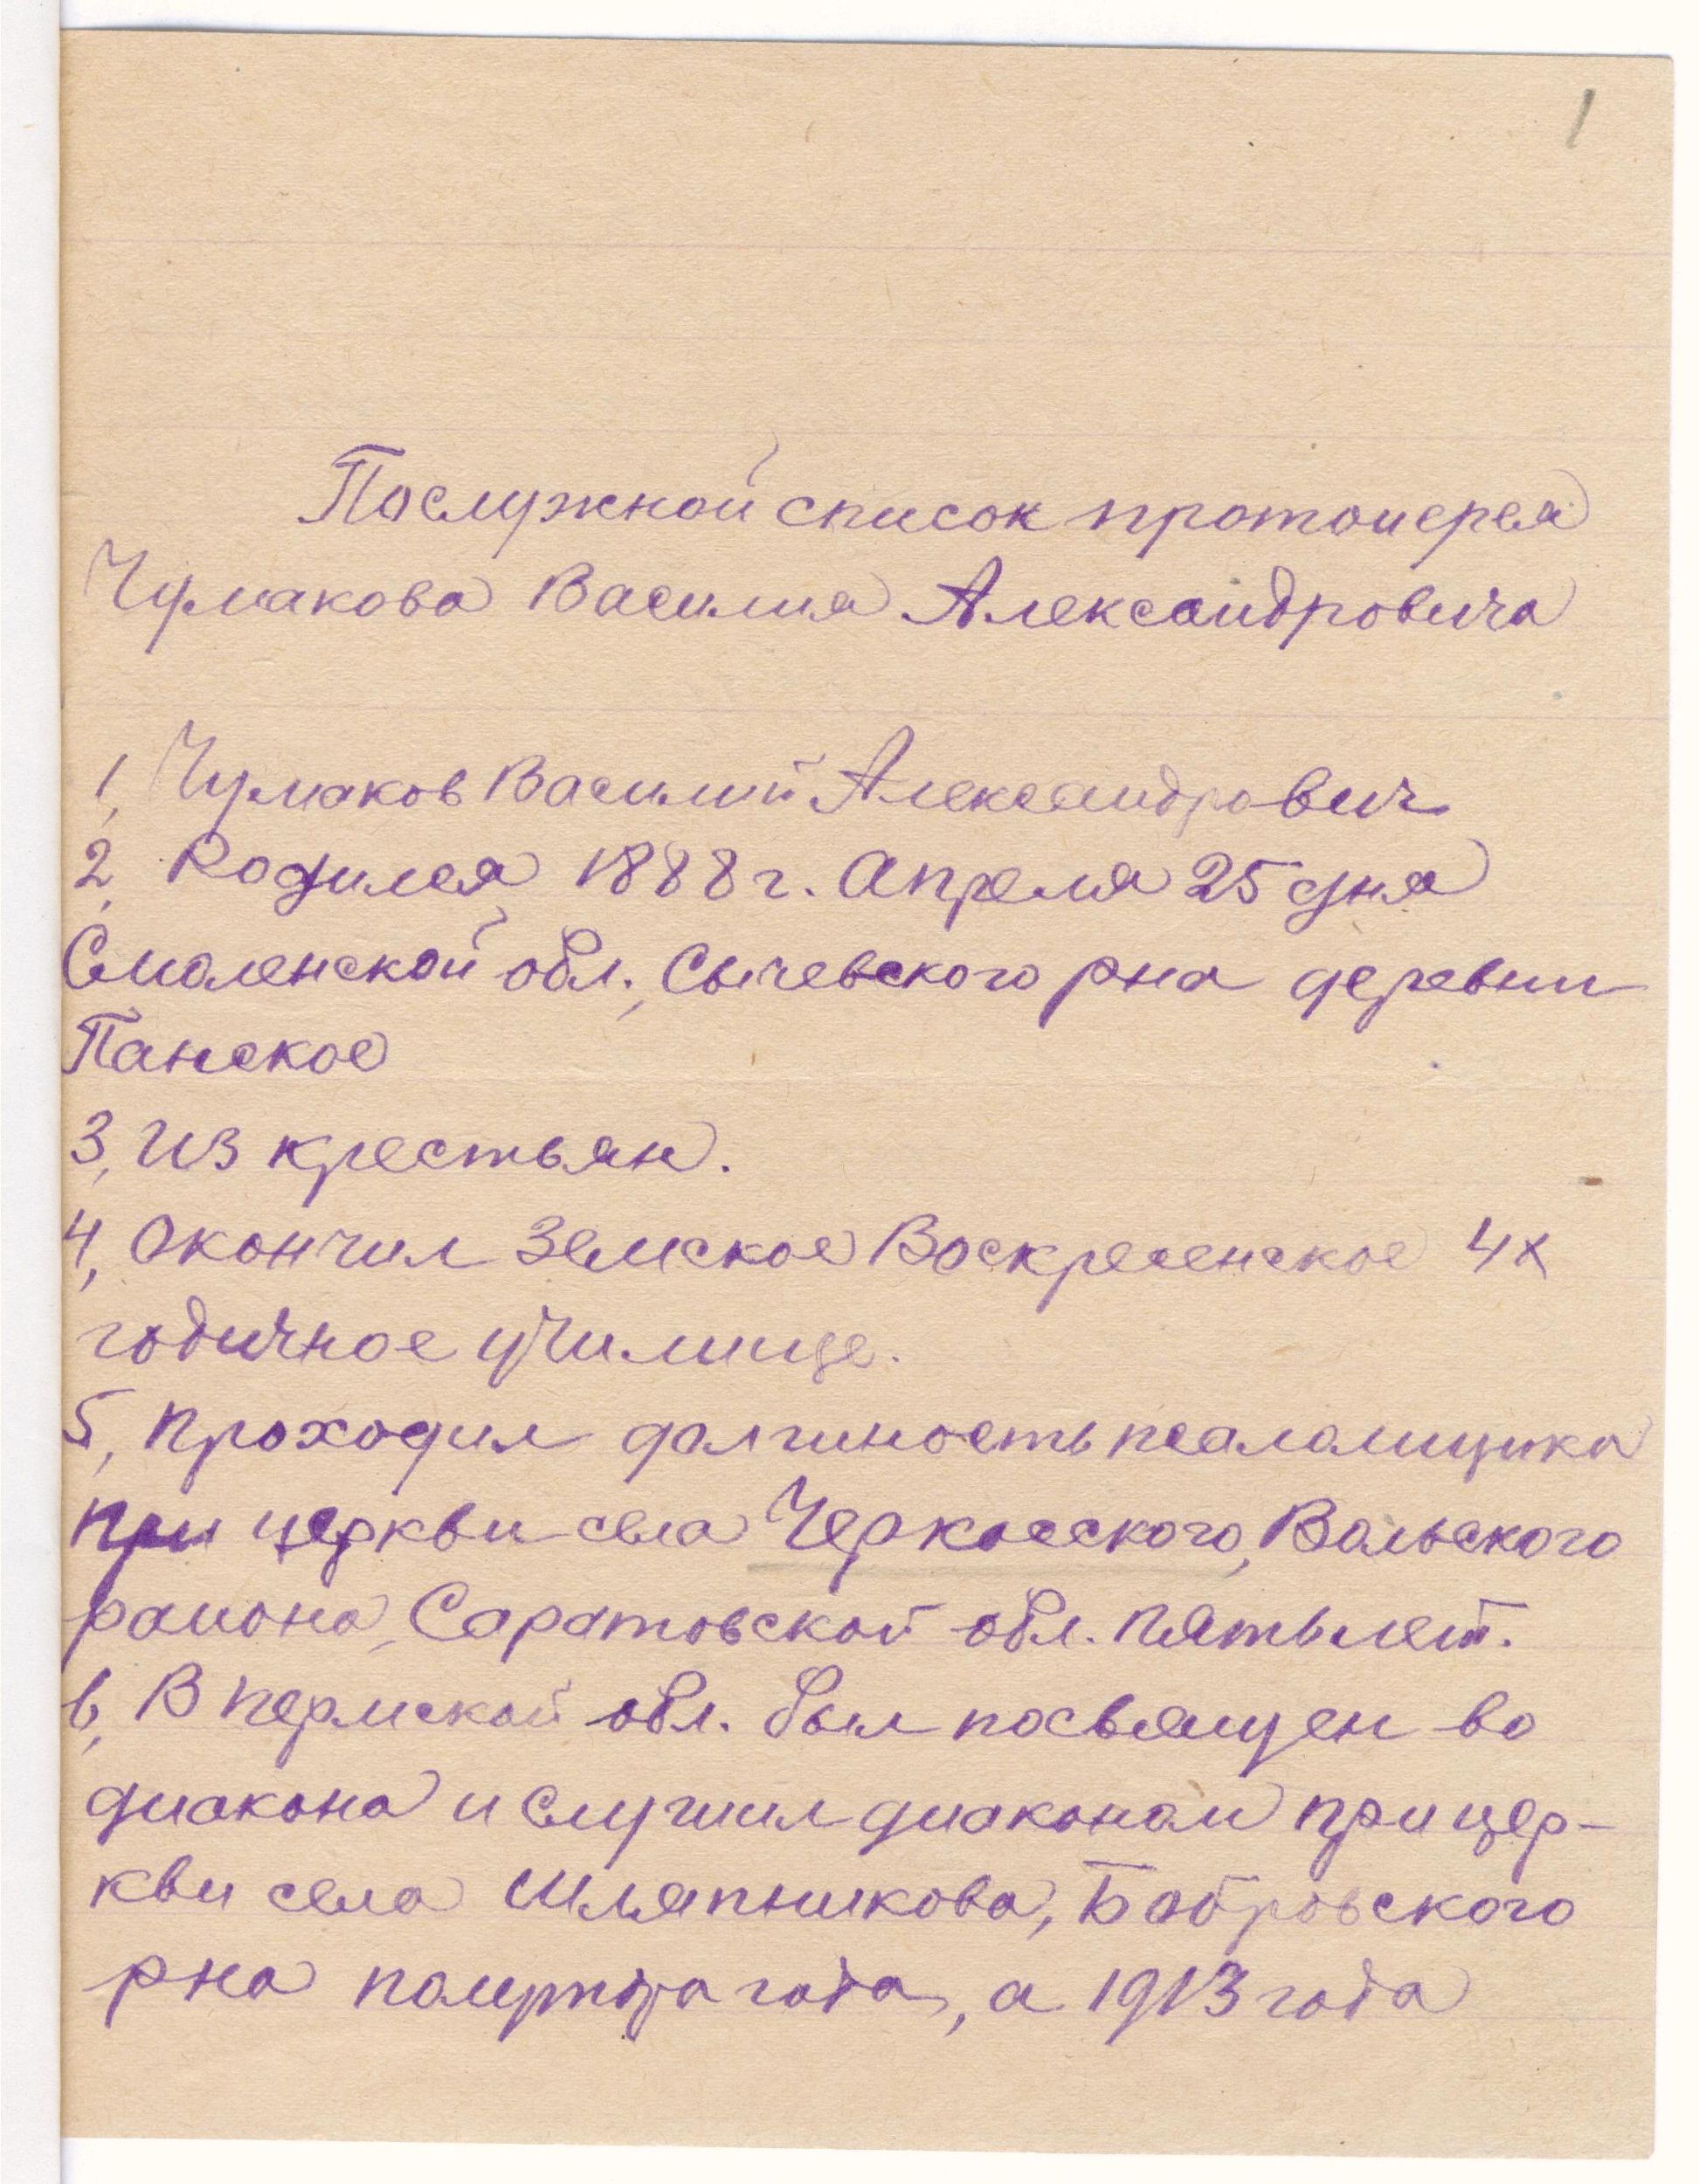 1
Послужной список протоиерея
Чумакова Василия Александровича
1, Чумаков Василий Александрович
2, Родился 1888 г. Апреля 25 дня
Смоленской обл., Сычевского рна деревни
Панское
3, Из крестьян.
4, Окончил Земское Воскресенское 4х
годичное училище.
5, Проходил должность псаломщика
при церкви села Черкасского, Вольского
района, Саратовской обл. пять лет.
6, В пермской обл. был посвящен во
диакона и служил диаконом при цер-
кви села Шляпникова, Бобровского
рна полутора года, а 1913 года